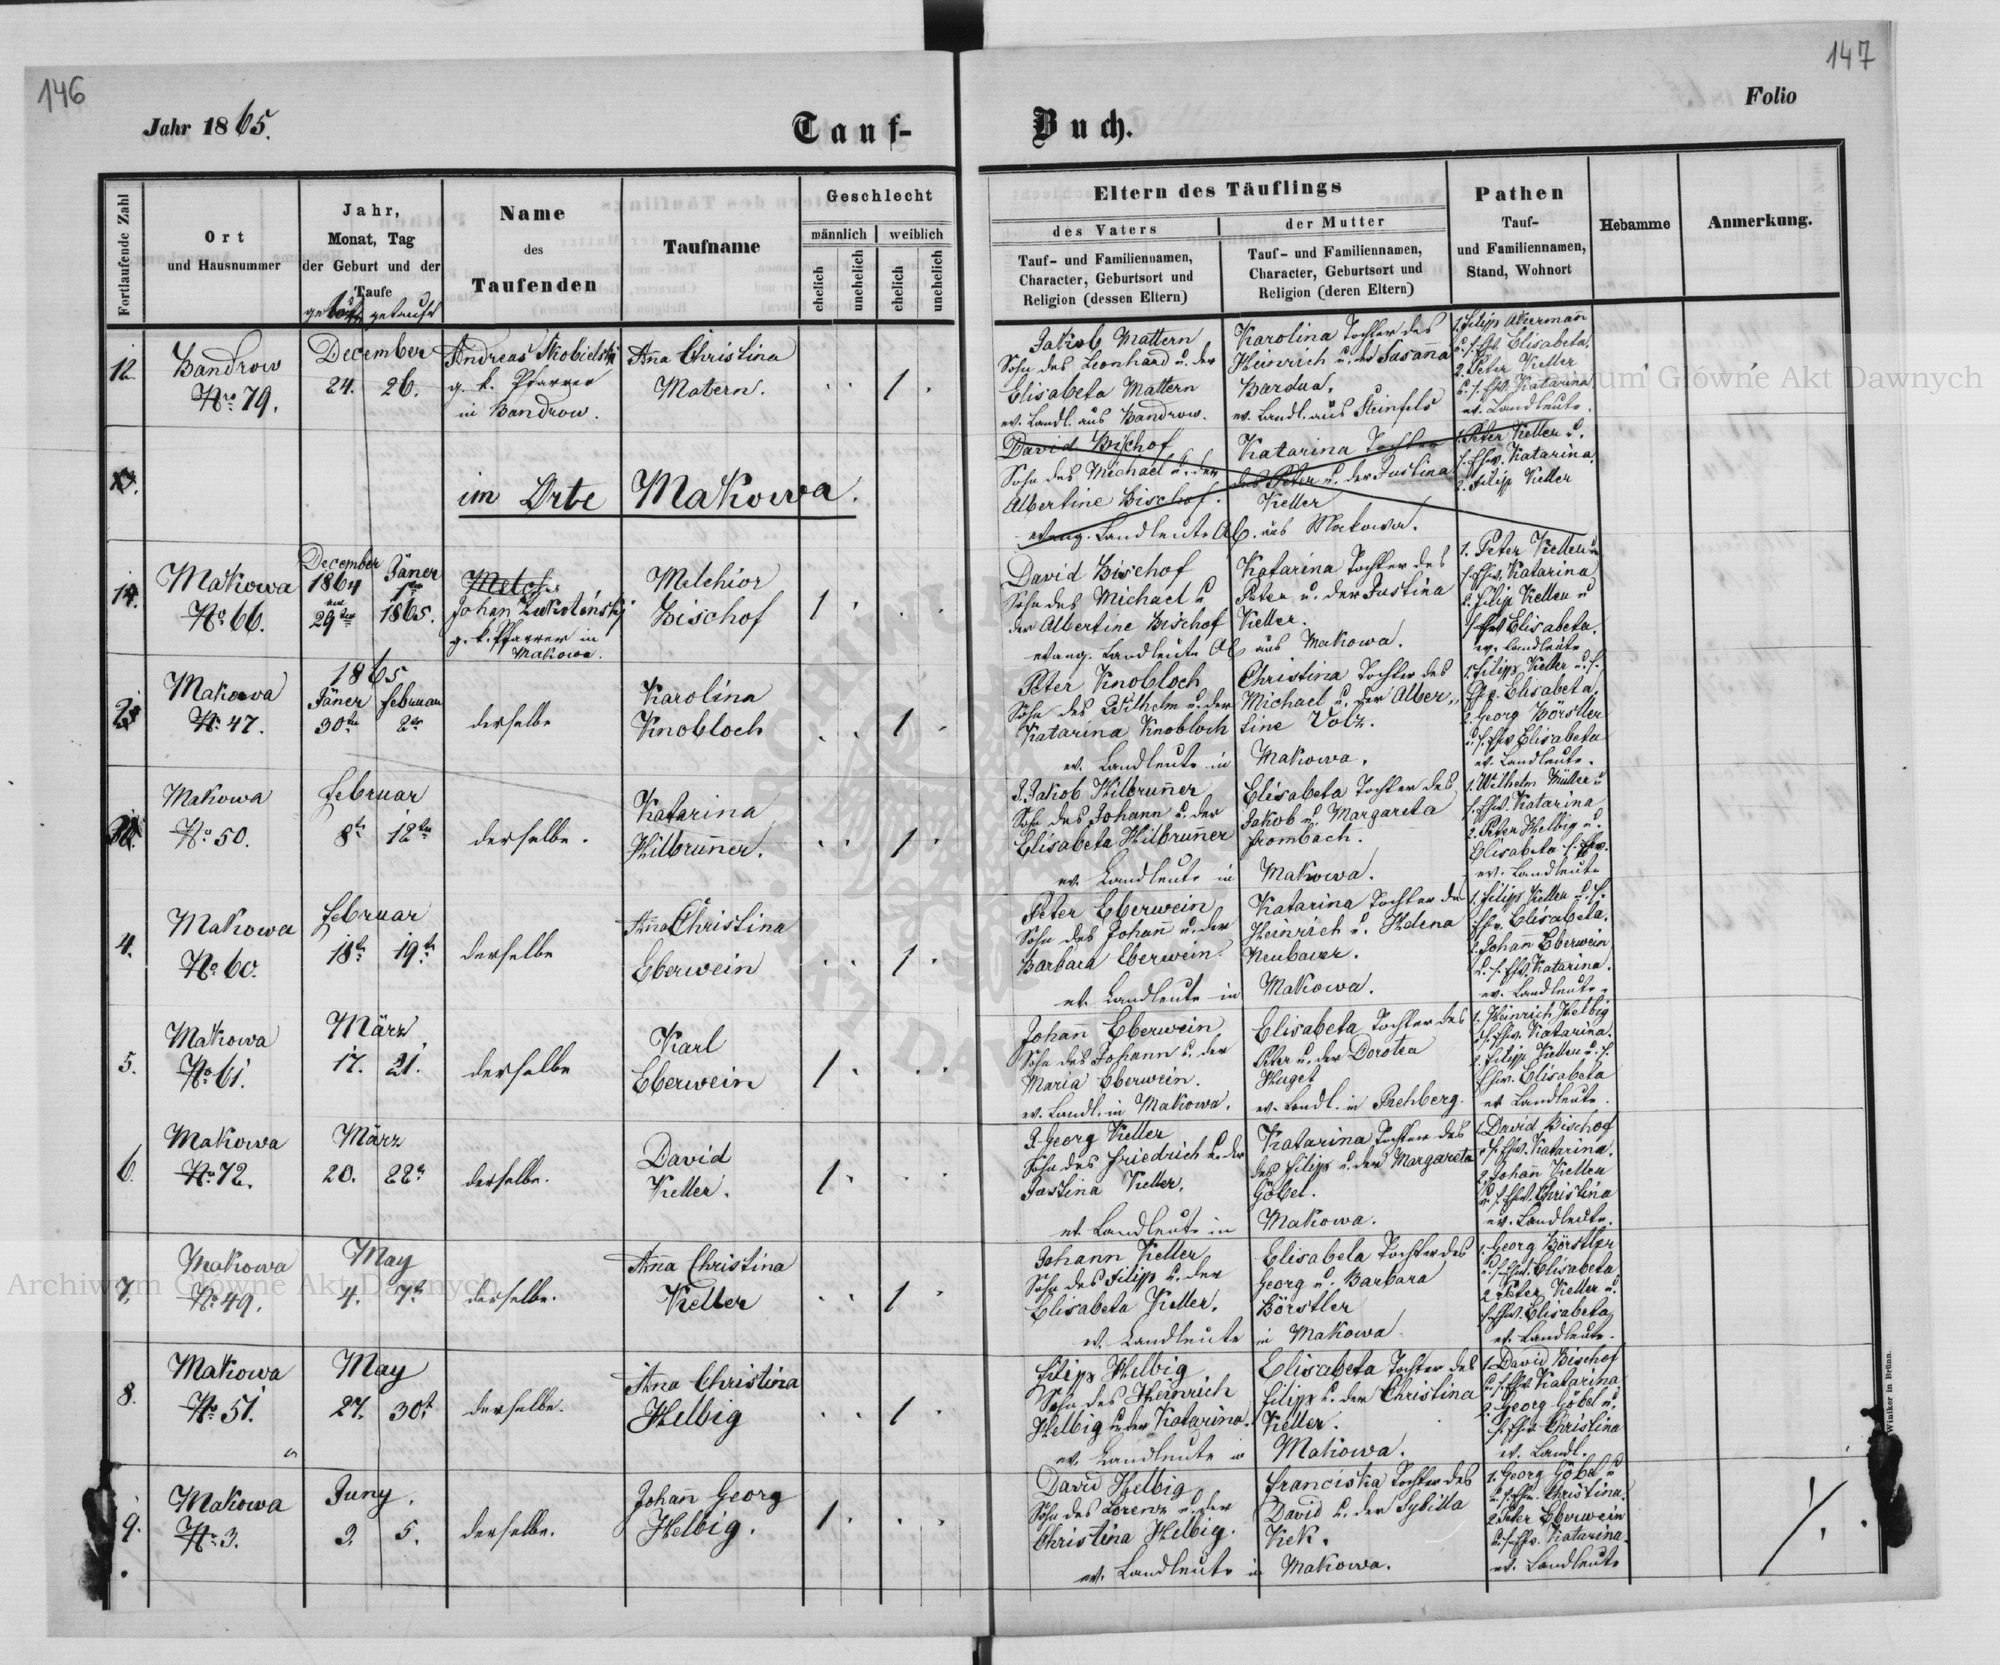 146
147
Jahr 1865.
Tauf-
Buch.
Folio
Fortlaufende Zahl
Ort
und Hausnummer
Jahr,
Monat, Tag
der Geburt und der
Taufe
getauft
Name
des
Taufenden
Taufname
Geschlecht
männlich
weiblich
ehelich
unehelich
ehelich
unehelich
Eltern des Täuflings
des Vaters
der Mutter
Tauf- und Familiennamen,
Character, Geburtsort und
Religion (dessen Eltern)
Tauf- und Familiennamen,
Character, Geburtsort und
Religion (deren Eltern)
Pathen
Tauf-
und Familiennamen,
Stand, Wohnort
Hebamme
Anmerkung.
12.
Bandrow
Nro 79.
December
24. 26.
Andreas
g. k. Pfarrer
in Bandrow.
Aña Christina
Matern.
1
Jakob Mattern
Sohn des Leonhard u. der
Elisabeta Mattern
ev. Landl. aus Bandrow.
Karolina Tochter des
Heinrich u. der Susaña
Bardua.
ev. Landl. aus Steinfels
1. Filipp Akerman
u. s. Ehw. Elisabeta.
2. Peter Keller
u. s. Ehw. Katarina
ev. Landleute.
im Orte Makowa.
David Bischof
Sohn des Michael u. der
Albertine Bischof.
evang. Landleute AC. aus Makowa.
Katarina Tochter
des Peter u. der Justina
Keller
1. Peter Keller u.
s. Ehw. Katarina.
2. Filip Keller
1.
Makowa
No 66.
December
1864
29ten
Jäner
1865.
Johan
g. k. Pfarrer in
Makowa.
Melchior
Bischof
1
David Bischof
Sohn des Michael u
der Albertine Bischof
evang. Landleute AC aus Makowa.
Katarina Tochter des
Peter u. der Justina
Keller.
1. Peter Keller u
s. Ehw. Katarina
2. Filip Keller u
s. Ehw Elisabeta.
ev. Landleute
2.
Makowa
No 47.
1865
Jäner
30ten
Februar
2ten
derselbe
Karolina
Knobloch
1
Peter Knobloch
Sohn des Wilhelm u. der
Katarina Knobloch
ev. Landleute in Makowa.
Christina Tochter des
Michael u. der Alber„
tine Volz.
1. Filipp Keller u. s.
Ehg. Elisabeta,
2. Georg Börstler
u s. Ehw Elisabeta
ev. Landleute.
Makowa
No 50.
Februar
8t 12ten
derselbe.
Katarina
Hilbruñer.
1
J. Jakob Hilbruñer
Sohn des Johann u. der
Elisabeta Hilbruñer
ev. Landleute in Makowa.
Elisabeta Tochter des
Jakob u. Margareta
Frombach.
1. Wilhelm Müller u
s. Ehw. Katarina
2. Peter Helbig u.
Elisabeta s. Ehw.
ev. Landleute
4.
Makowa
No 60.
Februar
18t 19t
derselbe
Aña Christina
Eberwein
1
Peter Eberwein
Sohn des Johañ u. der
Barbara Eberwein.
ev. Landleute in Makowa.
Katarina Tochter des
Heinrich u. Helena
Neubauer.
1. Filipp Keller u. s.
Ehw. Elisabeta.
2. Johañ Eberwein
u. s. Ehw. Katarina.
ev. Landleute.
5.
Makowa
No 61.
März
17. 21.
derselbe
Karl
Eberwein
1
Johan Eberwein
Sohn des Johann u. der
Maria Eberwein.
ev. Landl. in Makowa.
Elisabeta Tochter des
Peter u. der Dorotea
Huget
ev. Landl. in Rehberg.
1. Heinrich Helbig
u. s. Ehw. Katarina.
2. Filipp Keller u. s.
Ehw. Elisabeta
ev. Landleute.
6.
Makowa
No 72.
März
20. 22t
derselbe.
David
Keller.
1
J. Georg Keller
Sohn des Friedrich u. der
Justina Keller.
ev. Landleute in Makowa.
Katarina Tochter des
des Filipp u. der Margareta
Göbel.
1. David Bischof
u. s. Ehw. Katarina.
2. Johañ Keller
u. s. Ehw. Christina
ev. Landleute.
7.
Makowa
No 49.
May
4. 7t
derselbe.
Aña Christina
Keller
1
Johann Keller,
Sohn des Filipp u. der
Elisabeta Keller.
ev. Landleute in Makowa
Elisabeta Tochter des
Georg u. Barbara
Börstler
1. Georg Börstler
u. s. Ehw. Elisabeta
2. Peter Keller u.
s. Ehw. Elisabeta
ev. Landleute.
8.
Makowa
No 51.
May
27. 30t
derselbe.
Aña Christina
Helbig
1
Filipp Helbig
Sohn des Heinrich
Helbig u. der Katarina.
ev. Landleute in Makowa.
Elisabeta Tochter des
Filipp u. der Christina
Keller.
1. David Bischof
u. s. Ehw. Katarina
2. Georg Göbel u.
s. Ehw. Christina
ev. Landl.
9.
Makowa
No 3.
Juny.
3. 5.
derselbe.
Johañ Georg
Helbig.
1
David Helbig
Sohn des Lorenz u. der
Christina Helbig.
ev. Landleute in Makowa.
Franciska Tochter des
David u. der Sybilla
Kek.
1. Georg Göbel u
u. s. Ehw. Christina.
2. Peter Eberwein
u. s. Ehw. Katarina.
ev. Landleute
Winiker in Brünn.
Archiwum Główne Akt Dawnych
Archiwum Główne Akt Dawnych